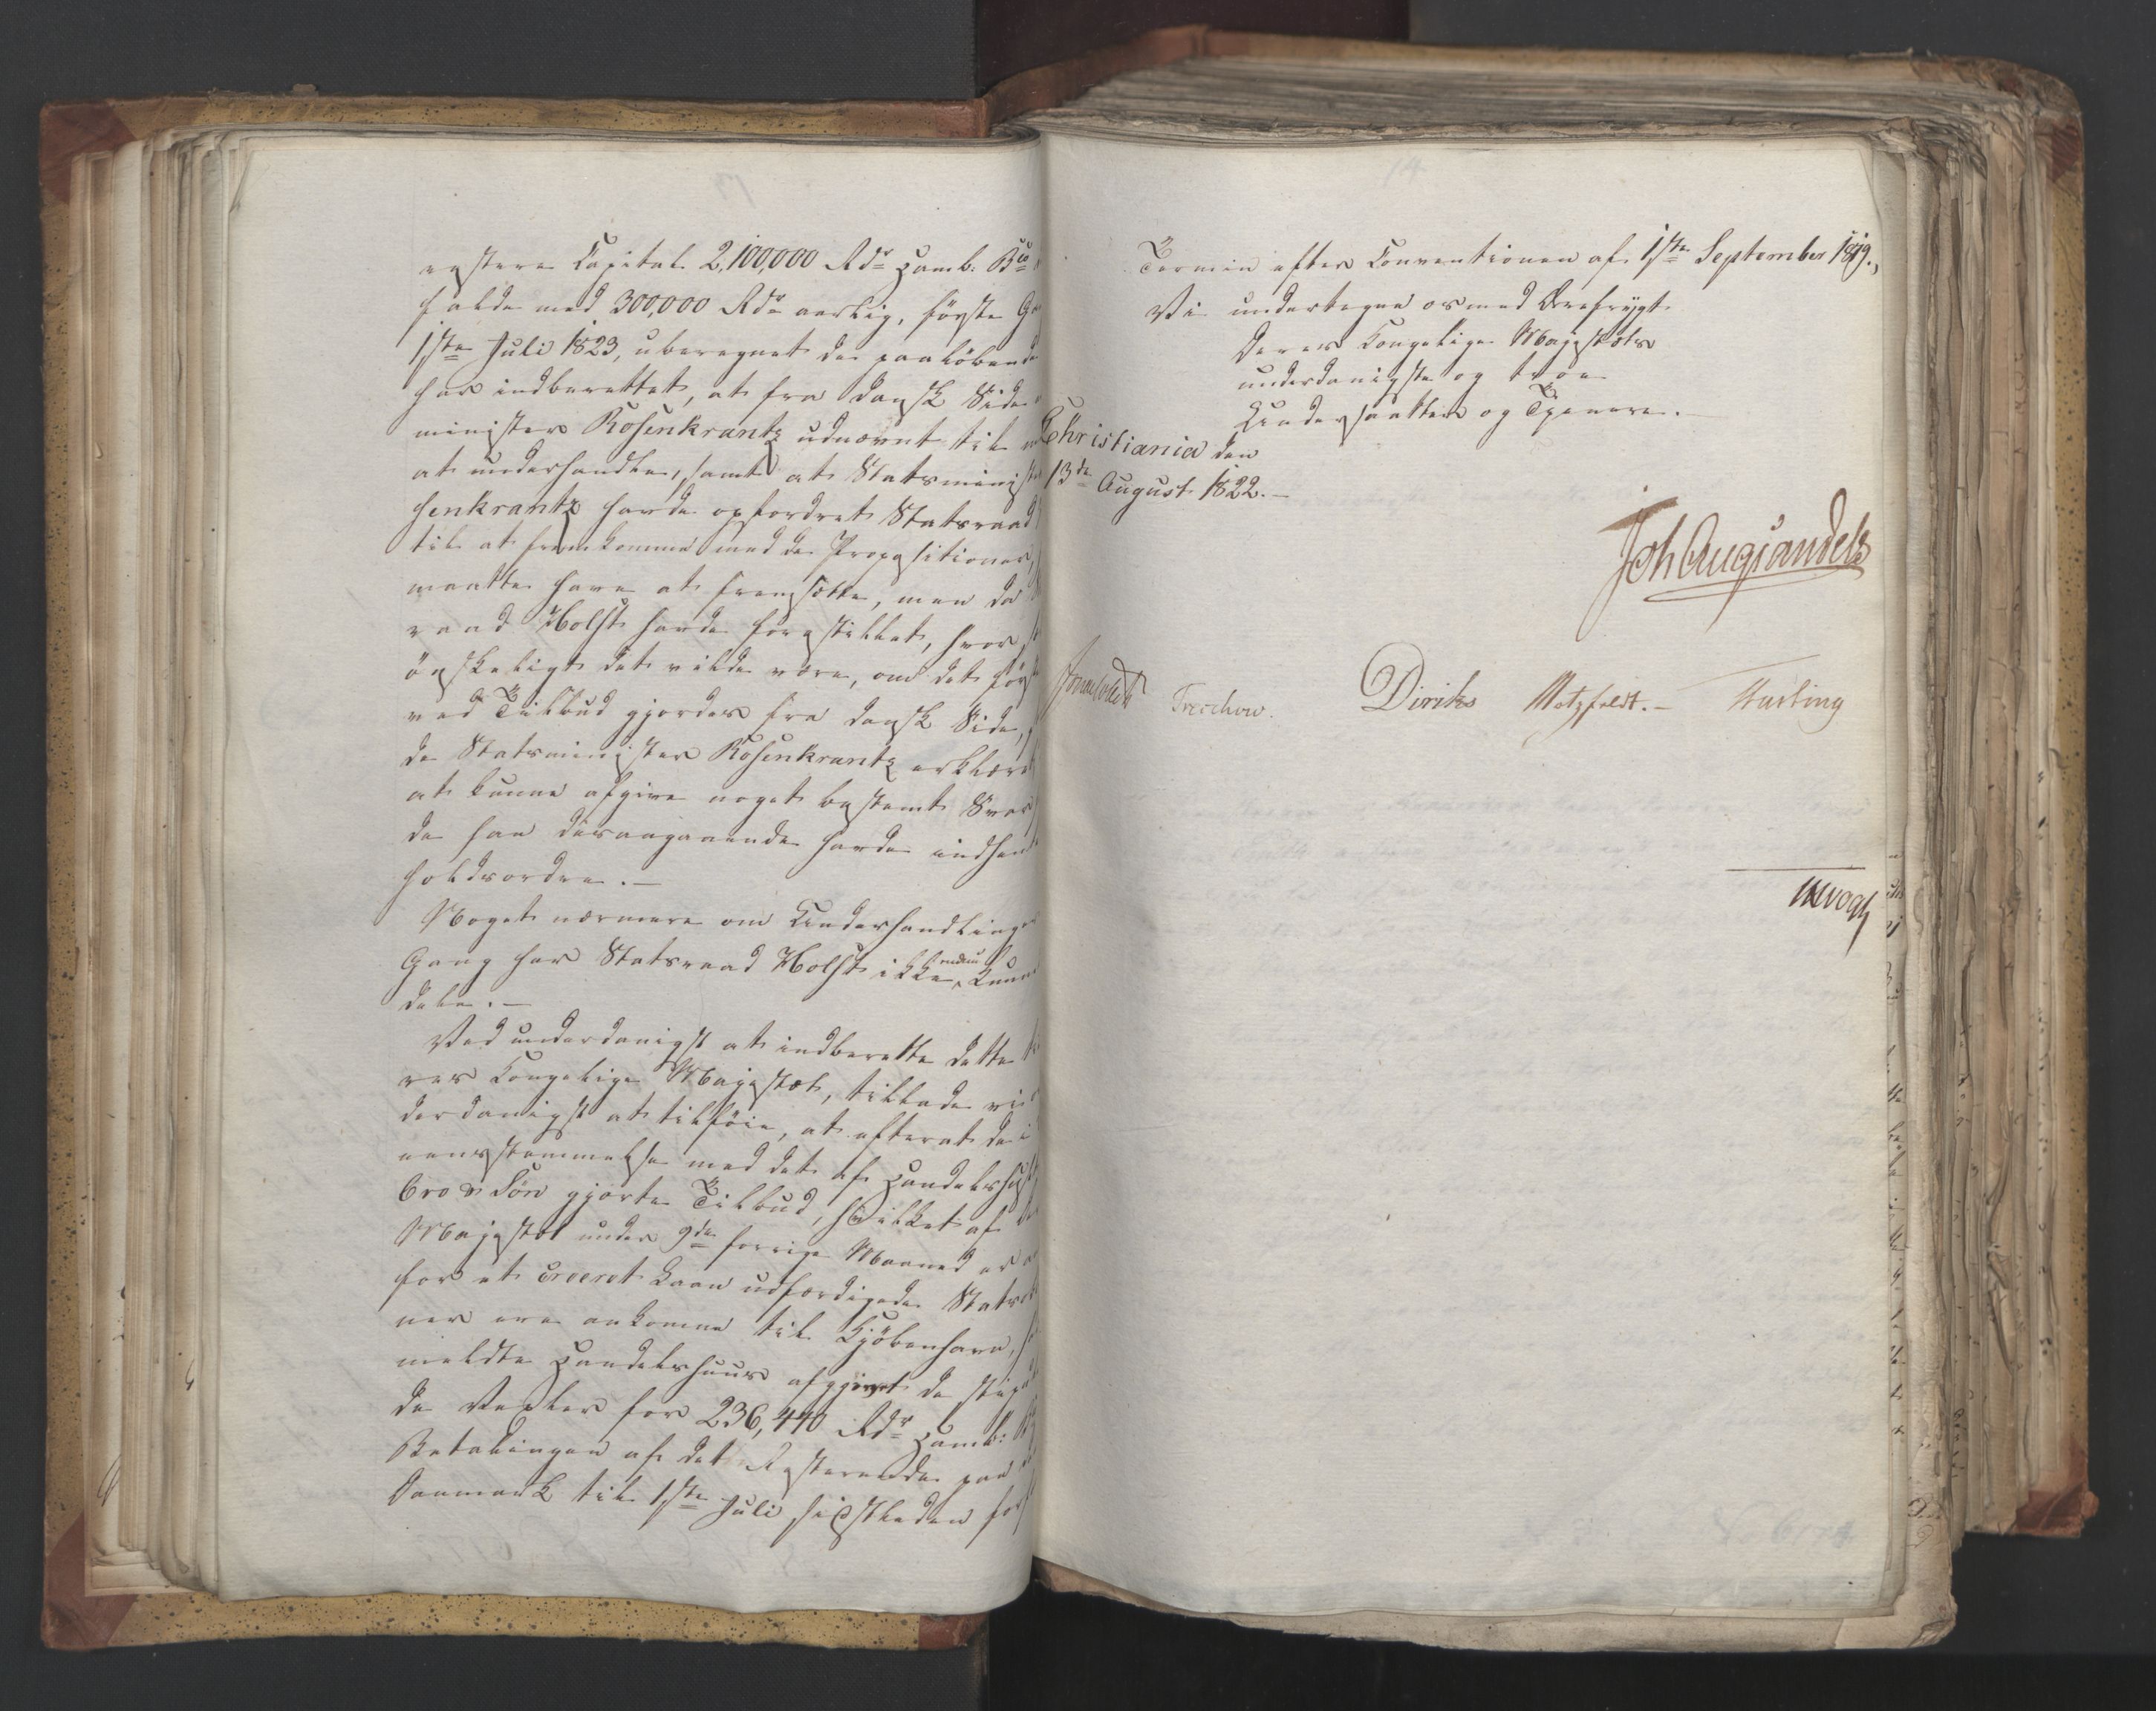 resterer Capital 2,100,000 Rdr Hamb: Bco
falde med 300,000 Rdr aarlig, første Ga
1ste Juli 1823, uberegnet de paaløbende
har indberettet, at fra dansk Side
minister Rosenkrantz udnævnt til
at underhandle, samt at Statsminist
senkrantz havde opfordret Statsraad
til at fremkomme med de Propositioner,
maatte have at fremsætte, men da
raad Holst havde forestillet, hvor
ønskeligt det vilde være, om det først
ved Tilbud gjordes fra dansk Side,
de Statsminister Rosenkrantz erklæret
at kunne afgive noget bestemt Svar
da han desaangaaende havde indhen
holdsordre.—
Noget nærmere om Underhandlinger
Gang har Statsraad Holst ikke endnu kunn
dele.—
Ved underdanigst at indberette dette
res Kongelige Majestæt, tillade vi
derdanigst at tilføie, at efterat de i
eensstemmelse med det af Handelshuset
Bro & Søn gjorte Tilbud, hvilket af
Majestæt under 9de forrige Maaned er
for et Laan udfærdigede Stats
ner ere ankomne til Kjøbenhavn,
meldte Handelshuus afgivet de
de Vexler for 236,440 Rdr Hamb:
Betalingen af det Resterende paa
Danmark til 1ste Juli sidstleden
14
Termin efter Conventionen af 1ste September 1819.,
Vi undertegne os med Ærefrygt
Deres Kongelige Majestæts
underdanigste og troe
Undersaatter og Tjenere.—
Christiania den
13de August 1822.—
Joh Aug Sandels
Sommerhielm Treschow. Diriks Motzfeldt.— Fasting
Vogt